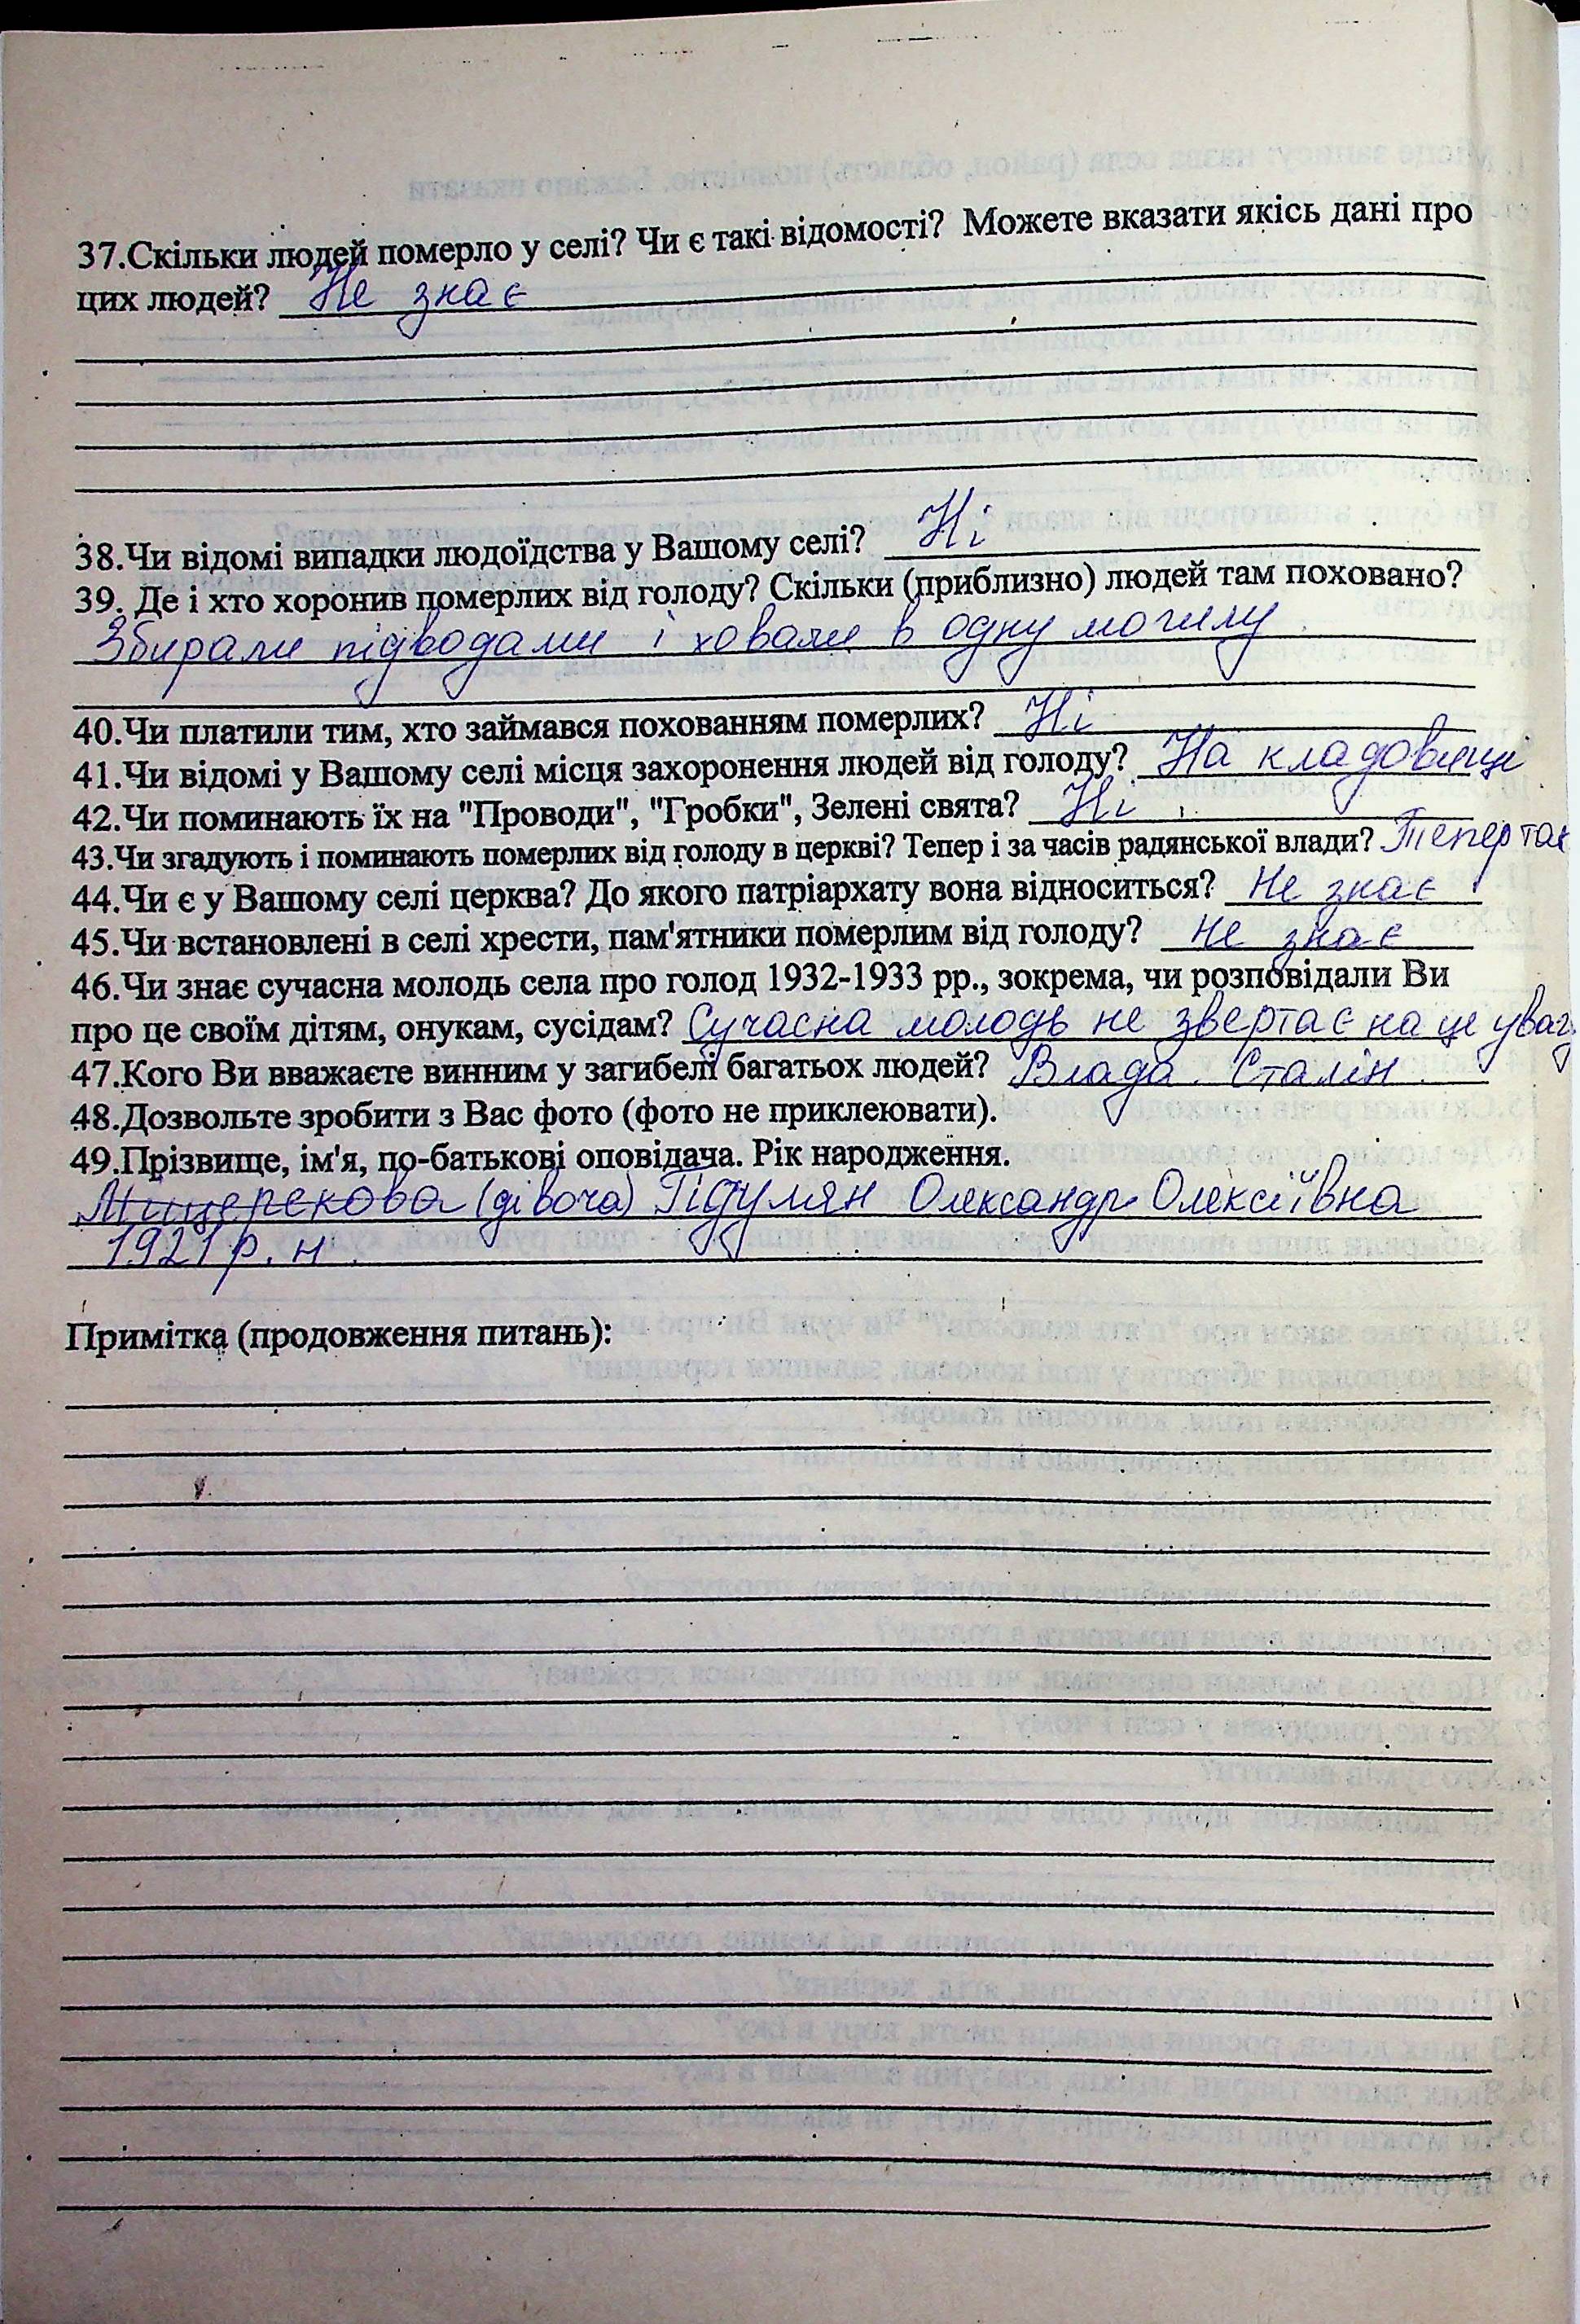 37.Скільки людей померло у селі? Чи є такі відомості? Можете вказати якісь дані про
цих людей? Не знає
38.Чи відомі випадки людоїдства у Вашому селі? Ні
39. Де і хто хоронив померлих від голоду? Скільки (приблизно) людей там поховано?
Збирали підводами і ховали в одну могилу.
40.Чи платили тим, хто займався похованням померлих? Ні
41.Чи відомі у Вашому селі місця захоронення людей від голоду? На кладовищі
42.Чи поминають їх на "Проводи", "Гробки", Зелені свята? Ні.
43.Чи згадують і поминають померлих від голоду в церкві? Тепер і за часів радянської влади? Тепер так
44.Чи є у Вашому селі церква? До якого патріархату вона відноситься? Не знає
45.Чи встановлені в селі хрести, пам'ятники померлим від голоду? Не знає
46.Чи знає сучасна молодь села про голод 1932-1933 рр., зокрема, чи розповідали Ви
про це своїм дітям, онукам, сусідам? Сучасна молодь не звертає на це уваг
47.Кого Ви вважаєте винним у загибелі багатьох людей? Влада. Сталін.
48.Дозвольте зробити з Вас фото (фото не приклеювати).
49.Прізвище, ім'я, по-батькові оповідача. Рік народження.
(дівоча) Гідулян Олександр Олексіївна
1921 р. н.
Примітка (продовження питань):